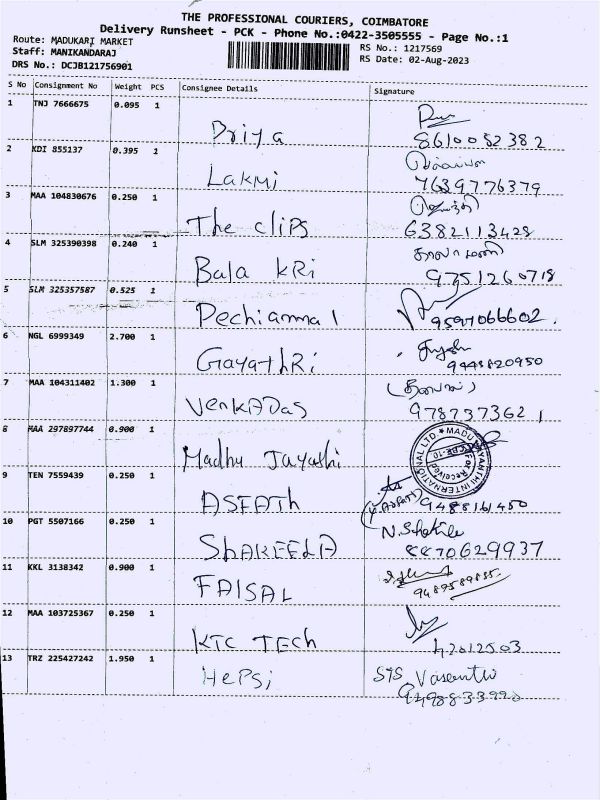 THE PROFESSIONAL COURIERS, COIMBATORE
Delivery Runsheet - PCK - Phone No.:0422-3505555 - Page No.:1
Route: MADUKARI MARKET
RS No.: 1217569
Staff: MANIKANDARAJ
RS Date: 02-Aug-2023
DRS No.: DCJB121756901
S No Consignment No Weight PCS Consignee Details Signature
1 TNJ 7666675 0.095 1
Priya 8610052382
2 KDI 855137 0.395 1
Lakmi 7639776379
3 MAA 104830676 0.250 1
The clips 6382113428
4 SLM 325390398 0.240 1
Bala kRi 9751260718
5 SLM 325357587 0.525 1
Pechiammal 9597066602.
6 NGL 6999349 2.700 1
GayathRi 9443820950
7 MAA 104311402 1.300 1
VenkADas 9787373621
8 MAA 297897744 0.900 1
Madhu Jayathi
9 TEN 7559439 0.250 1
ASFATh 9488161450
10 PGT 5507166 0.250 1
N.Shakila
ShAKEELA 8870629937
11 KKL 3138342 0.900 1
FAISAL 9489589855
12 MAA 103725367 0.250 1
KTC TECh
13 TRZ 225427242 1.950 1
HePSi